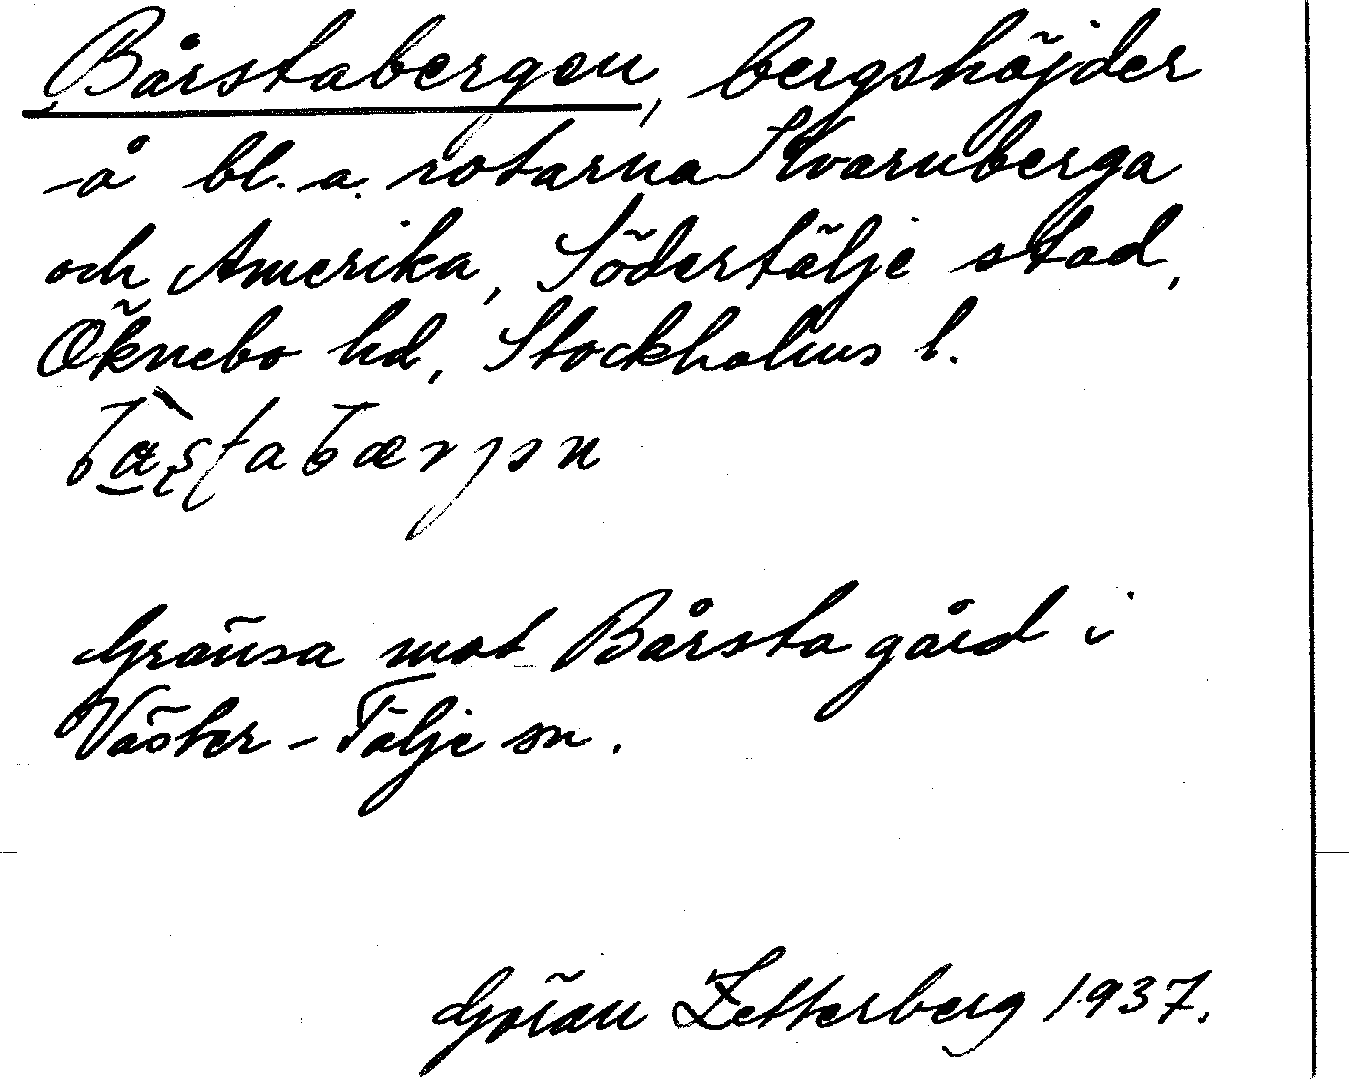 Bårstabergen, bergshöjder
å bl. a. rotarna Kvarnberga
och Amerika, Södertälje stad,
Öknebo hd, Stockholms l.
Gränsa mot Bårsta gård i
Väster-Tälje sn.
Göran Zetterberg 1937.